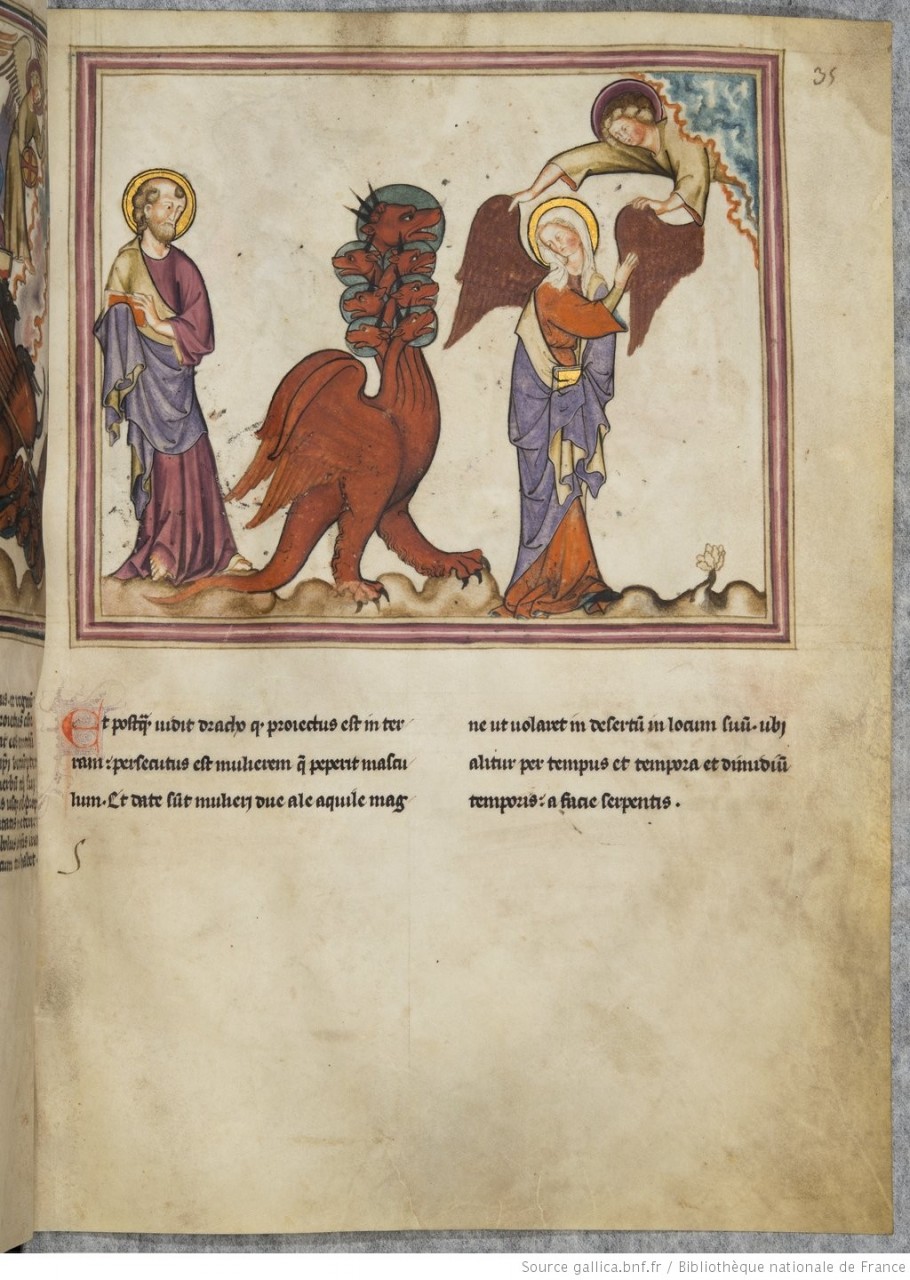 35
Et postq̃ʒ uidit dracho q̵ proiectus est in ter
ram: persecutus est mulierem q̃ peperit mascu
lum. Et date sũt mulieri due ale aquile mag
ne ut uolaret in desertũ in locum suũ. ubi
alitur per tempus et tempora et dimidiũ
temporis: a facie serpentis.
S
Source gallica.bnf.fr / Bibliothèque nationale de France